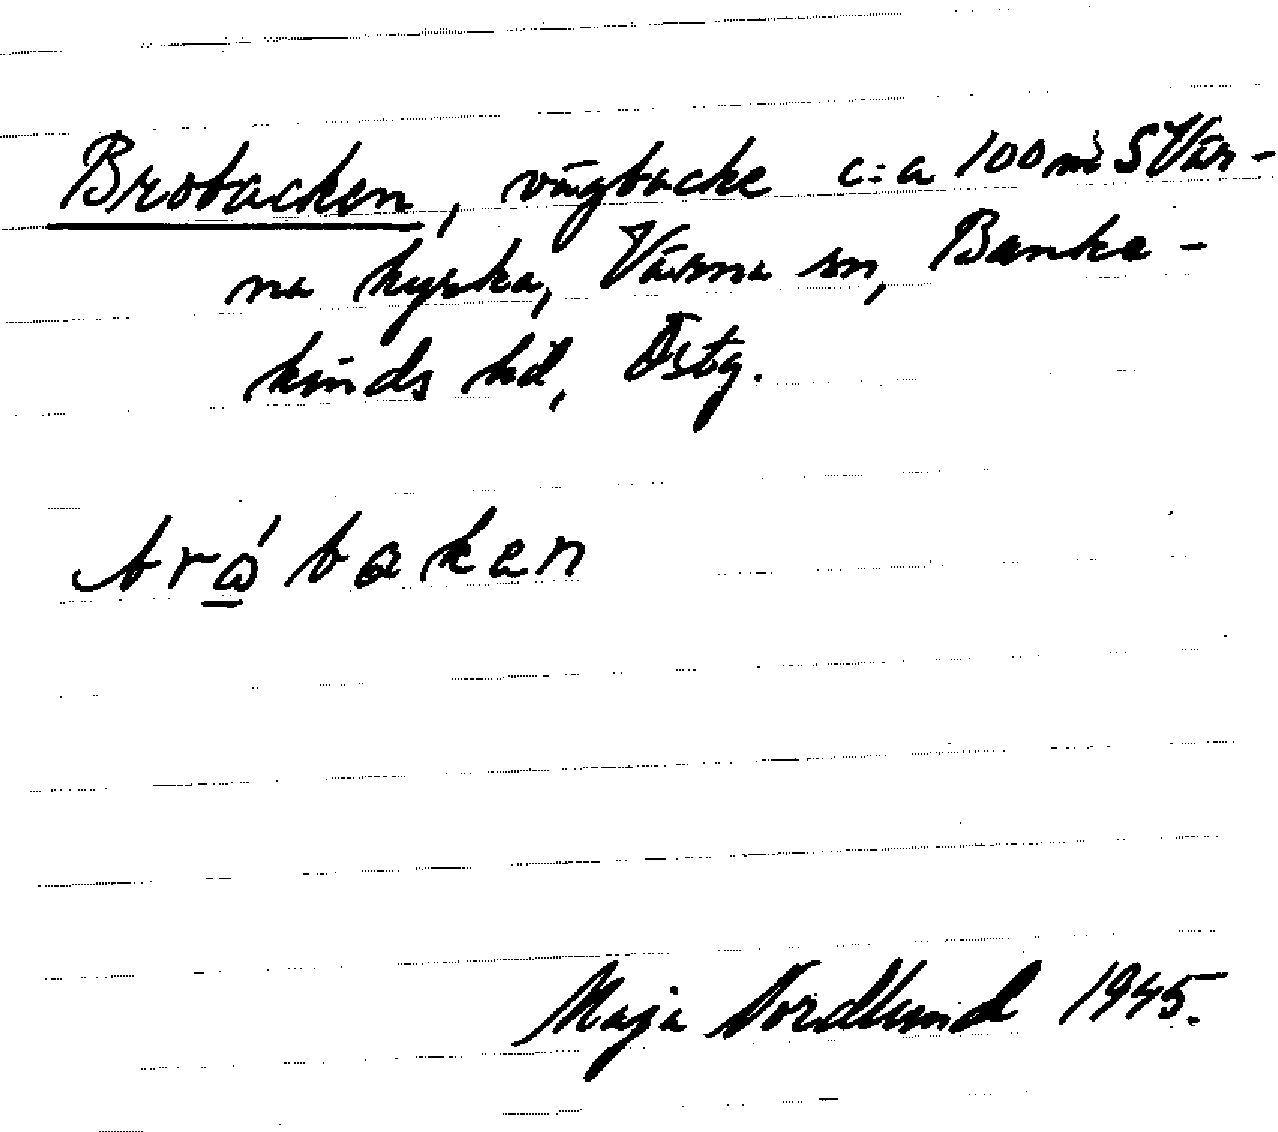 Brobacken, vägbacke c:a 100 m S Vär-
na kyrka, Värna sn, Banke-
kinds hd, Östg.
brώ̱baken
Maja Nordlund 1945.